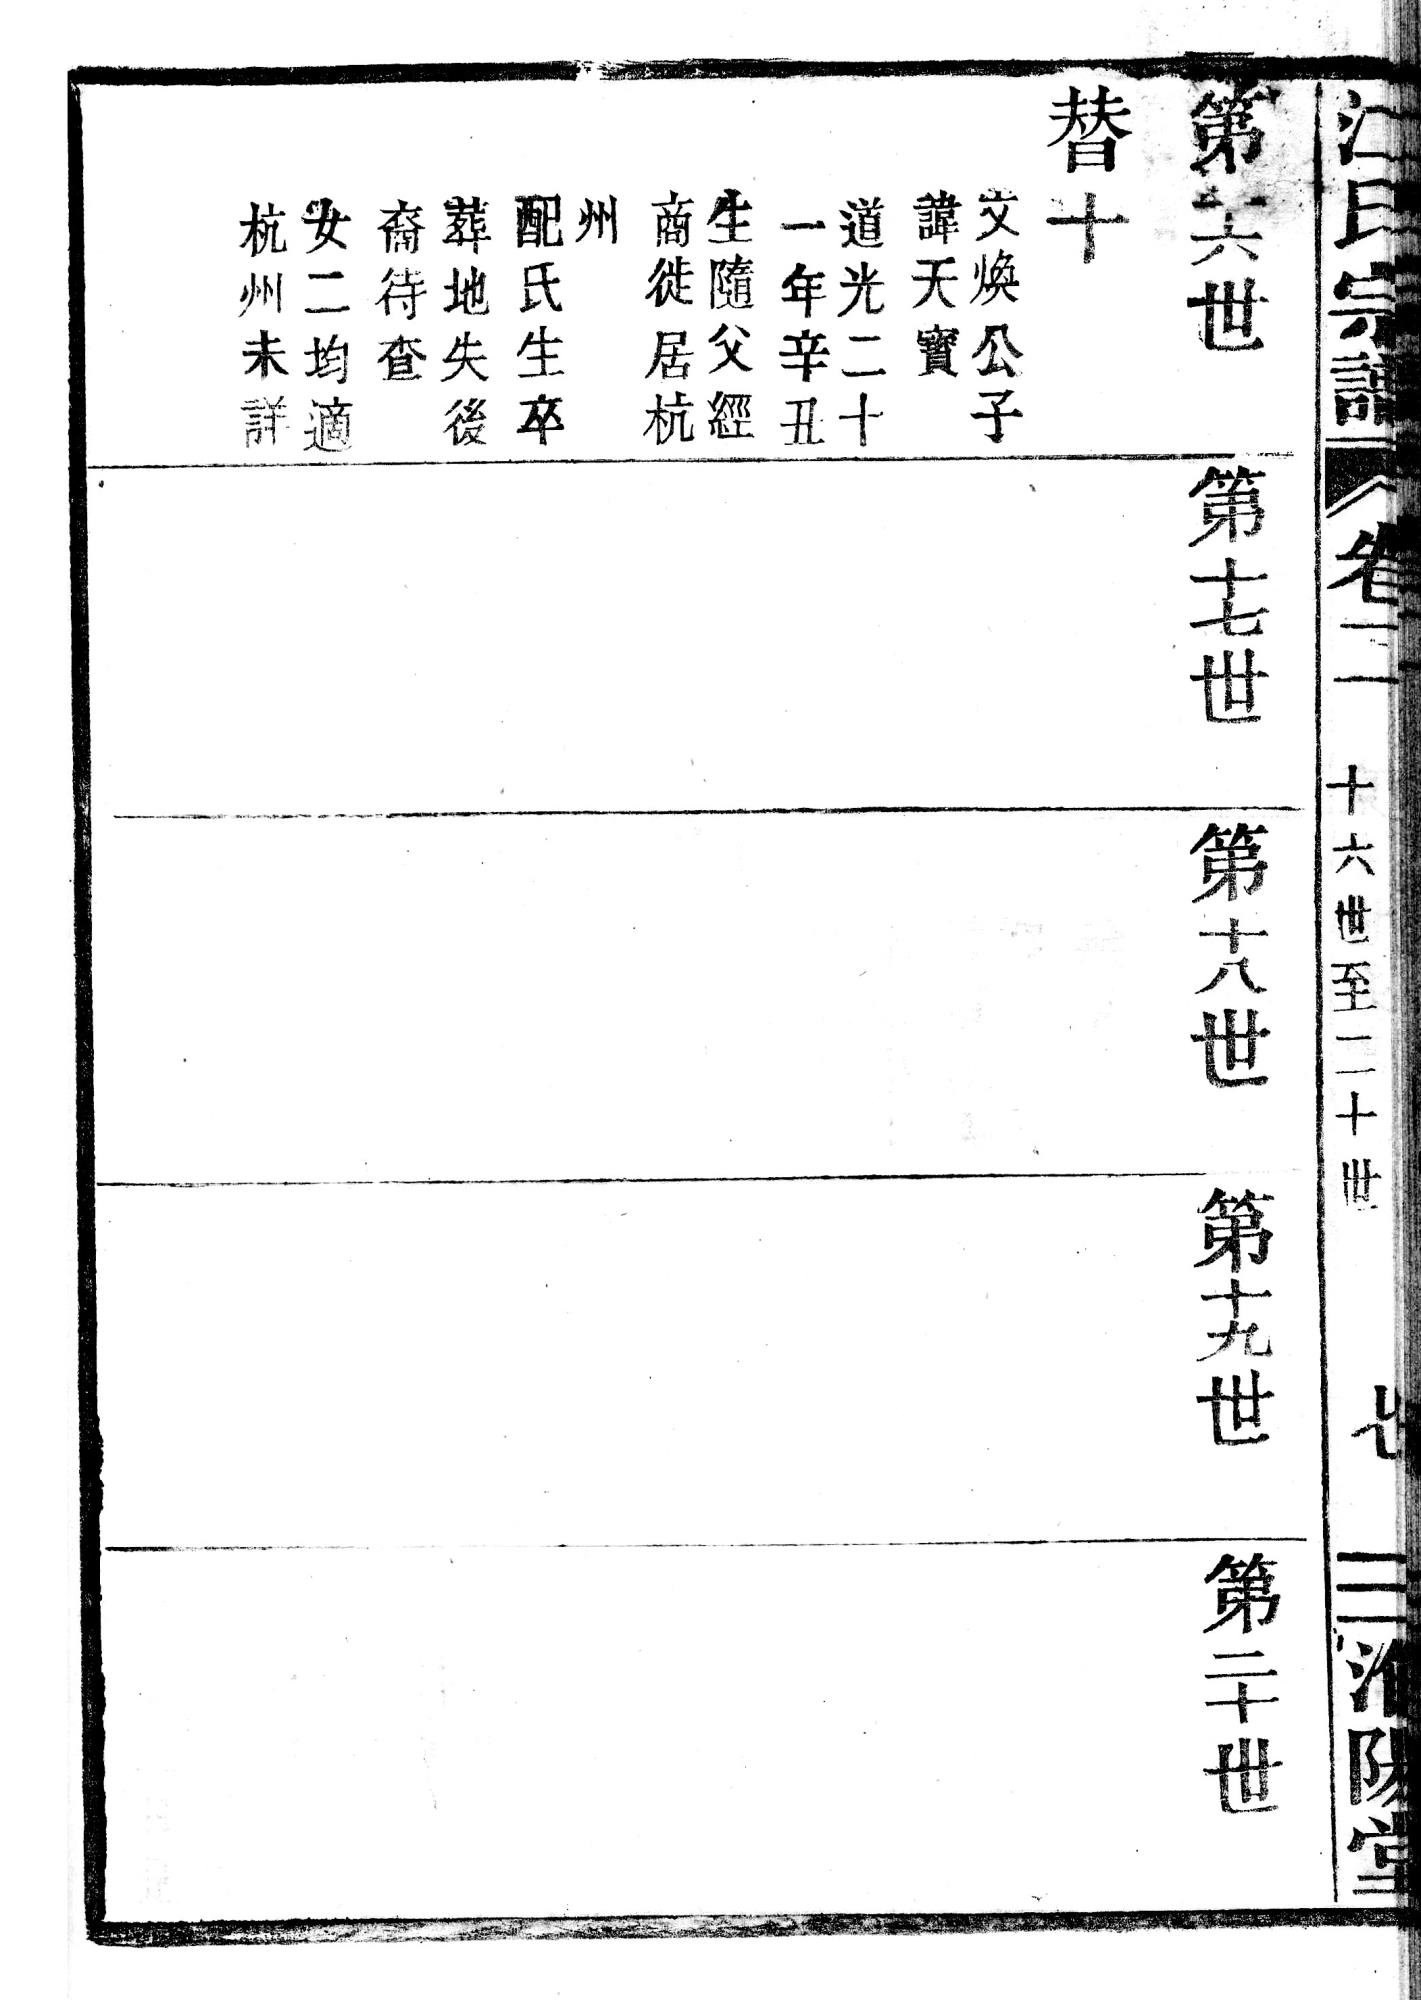 江氏宗譜
卷二
十六世至二十世
淮陽堂
第十六世
替十
文煥公子
諱天寶
道光二十
一年辛丑
生隨父經
商徙居杭
州
配氏生卒
葬地失後
裔待查
女二均適
杭州未詳
第十七世
第十八世
第十九世
第二十世